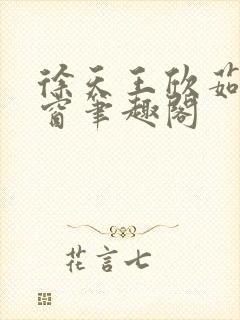 徐天王欣茹
窗笔趣阁
花言七